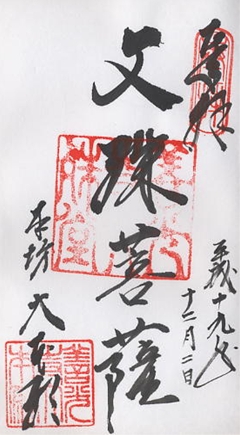 奉拝
文殊菩薩
平成十九年
十二月二日
本坊 大勧進